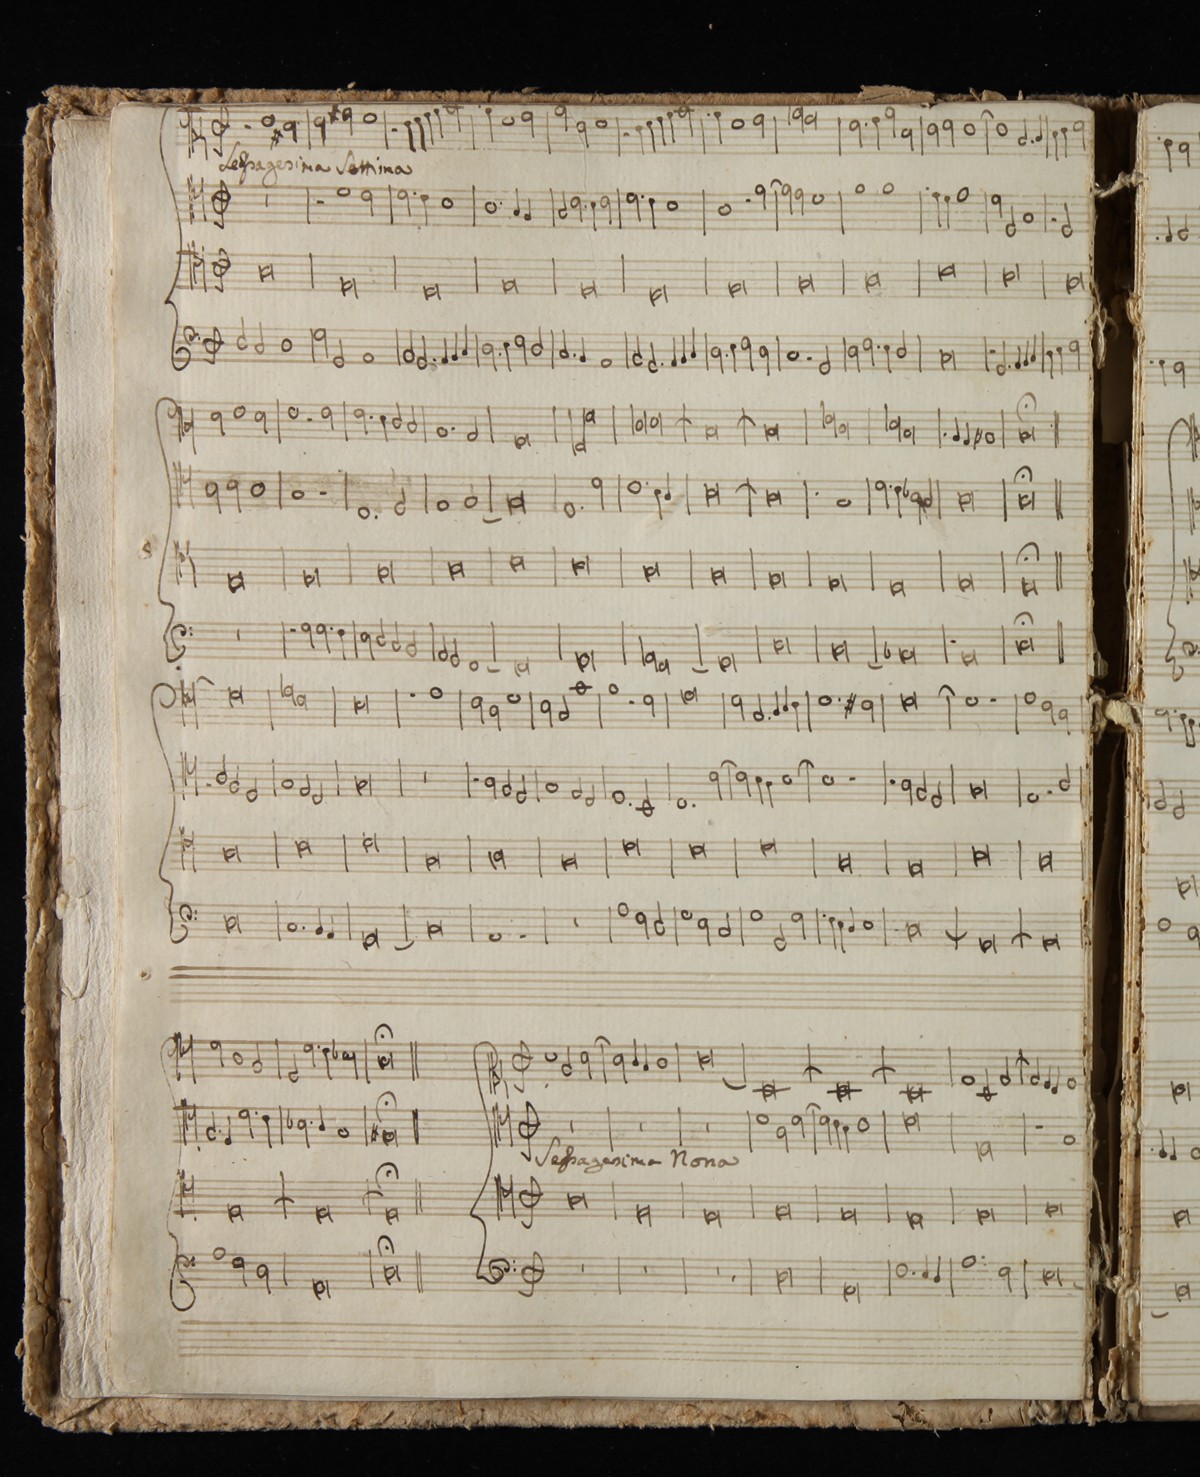 Sessagesima Settima
Sessagesima Nona